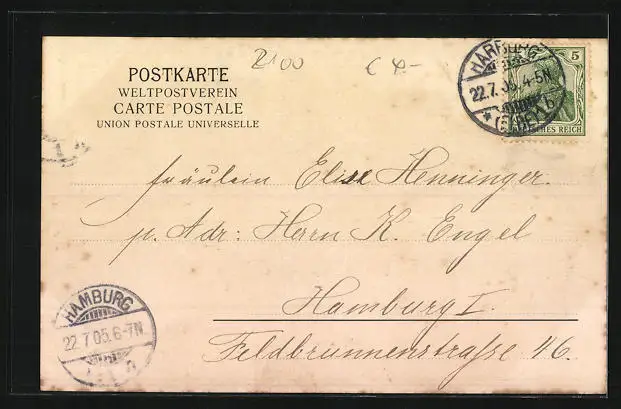 2100 € 4.-
POSTKARTE
WELTPOSTVEREIN
CARTE POSTALE
UNION POSTALE UNIVERSELLE
HARBURG
22.7.05. 4-5N
* (ELBE) 1b
5
DEUTSCHES REICH
Fräulein Elise Henninger.
p. Adr: Herrn K. Engel
Hamburg I.
Feldbrunnenstraße 46.
HAMBURG
22.7.05.6-7N